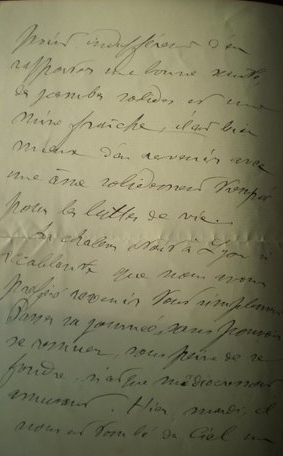 point indifférent d'en
rapporter une bonne santé,
des jambes solides et une
mine fraîche, il est bien
mieux d'en revenir avec
une âme solidement trempée
pour les luttes de vie.
La chaleur était à Lyon si
accablante que nous nous
revenir tout simplement.
Passer sa journée, sans pouvoir
se remuer, sous peine de se
fondre, n'est que médiocrement
amusant. Hier, mardi, il
nous est tombé du Ciel un